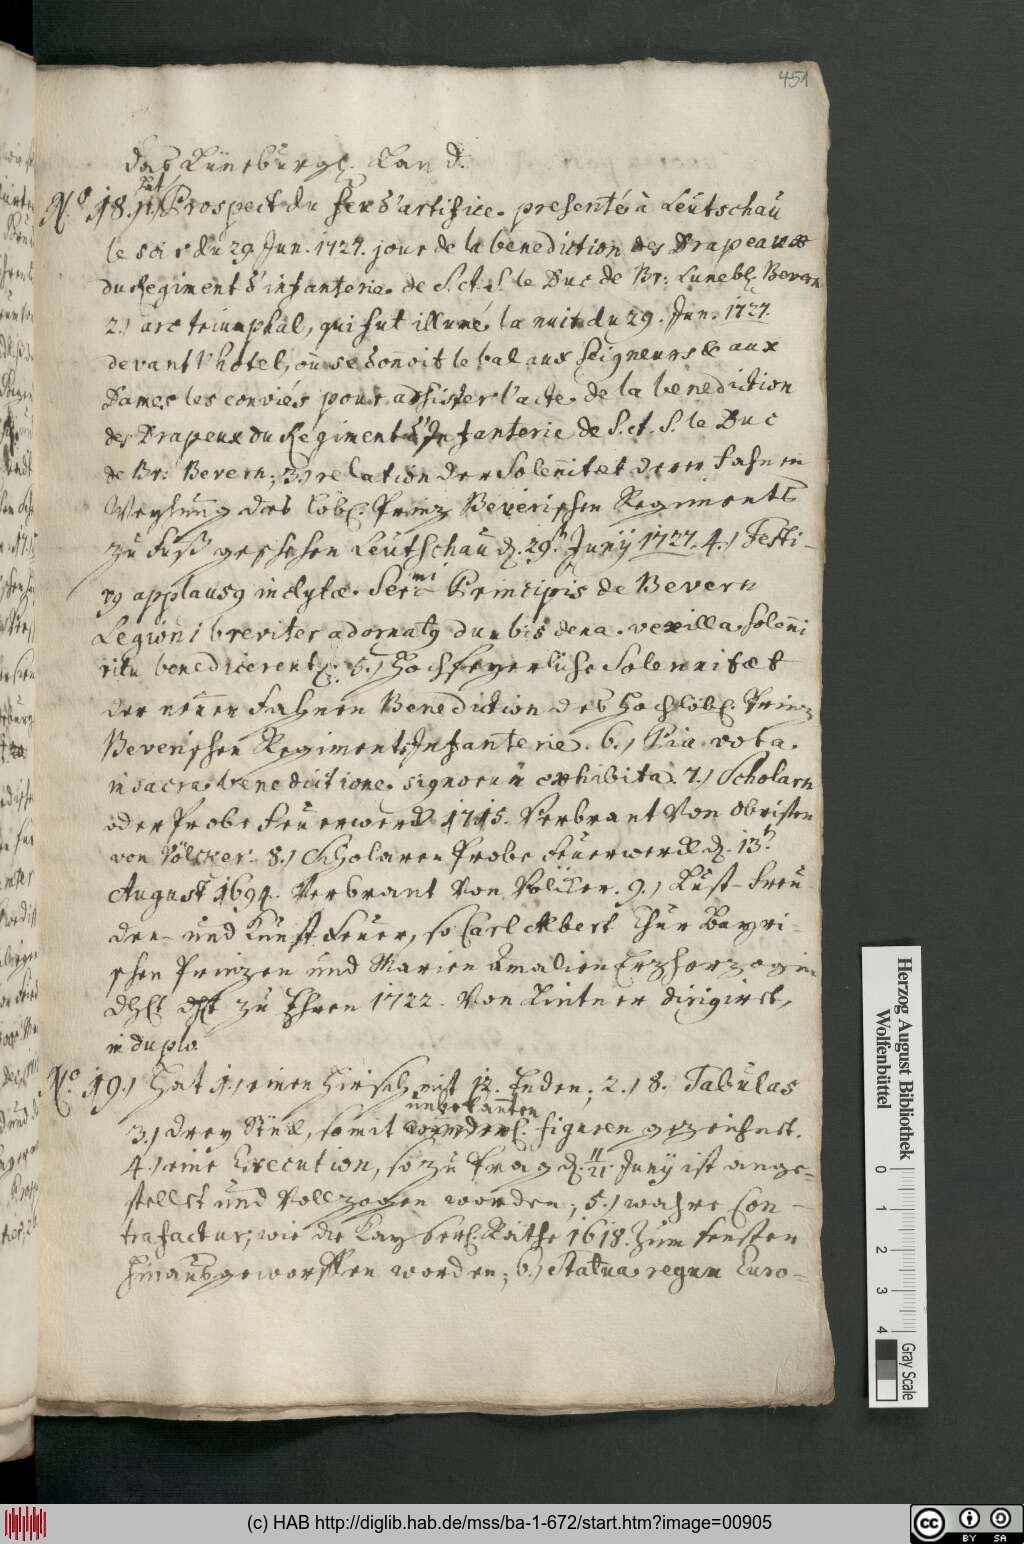 451
das Lüneburgl. Land.
No 18. hat 1.) Prospect du feu d'artifice. presenté à Leütschau
le soir du 29 Jun. 1727. jour de la benediction des Drapeaux
du Regiment d'infanterie. de S. A. S. le Duc de Br: Lunebl. Bevern
2.) arc triumphal, qui fut illuné la nuit du 29. Jun. 1727.
devant l'hotel, où se donnoit le bal aux Seigneurs & aux
Dames les conviés pour adsister l'acte. de la benediction
des Drapeux du Regiment d'Infanterie de S. A. S. le Duc
de Br: Bevern; 3.) relation der Solennitæt deren Fahnen
Weyhung des löbl. Prinz Beverischen Regiments
zu Fuß geschehen Leütschau d. 29. Junij 1727. 4.) Festi-
vus applausus inclytæ. Sermi Principis de Bevern
Legioni breviter adornatus dum bis dena. vexilla solenni
ritu benedicerentur. 5.) Hochfeyerliche Solennitæt
der neüen Fahnen Benediction des Hochlöbl. Prinz
Beverischen Regiments Infanterie. 6.) Pia vota.
in sacra benedictione. signorum exhibita. 7.) Scholarn
oder Probe Feuerwerck 1715. Verbrant Von Obristen
von Völcker. 8.) Scholaren Probe Feuerwerck d. 13t
August 1694. Verbrant Von Völcker. 9.) Lust-Freu
den- und Kunst Feuer, so Carl Albert Chur Bayri-
schen Prinzen und Marien Amalien Erzherzogin
zu Ehren 1722. Von Lintner dirigiret,
in duplo
No. 19.) Hat 1.) einen Hirsch mit 12. Enden; 2.) 8. Tabulas
3.) drey Stück, so mit unbekannten figuren gezeichnet.
4.) eine Execution, so zu Prag d. 11/21 Junij ist ange-
stellet und Vollzogen worden; 5.) wahre Con-
trafactur; wie die Kayserl. Räthe 1618. Zum Fenster
hinausgeworffen worden; 6.) Statua regum Euro-
Herzog August Bibliothek
Wolfenbüttel
0 1 2 3 4
Gray Scale
(c) HAB http://diglib.hab.de/mss/ba-1-672/start.htm?image=00905
cc BY SA